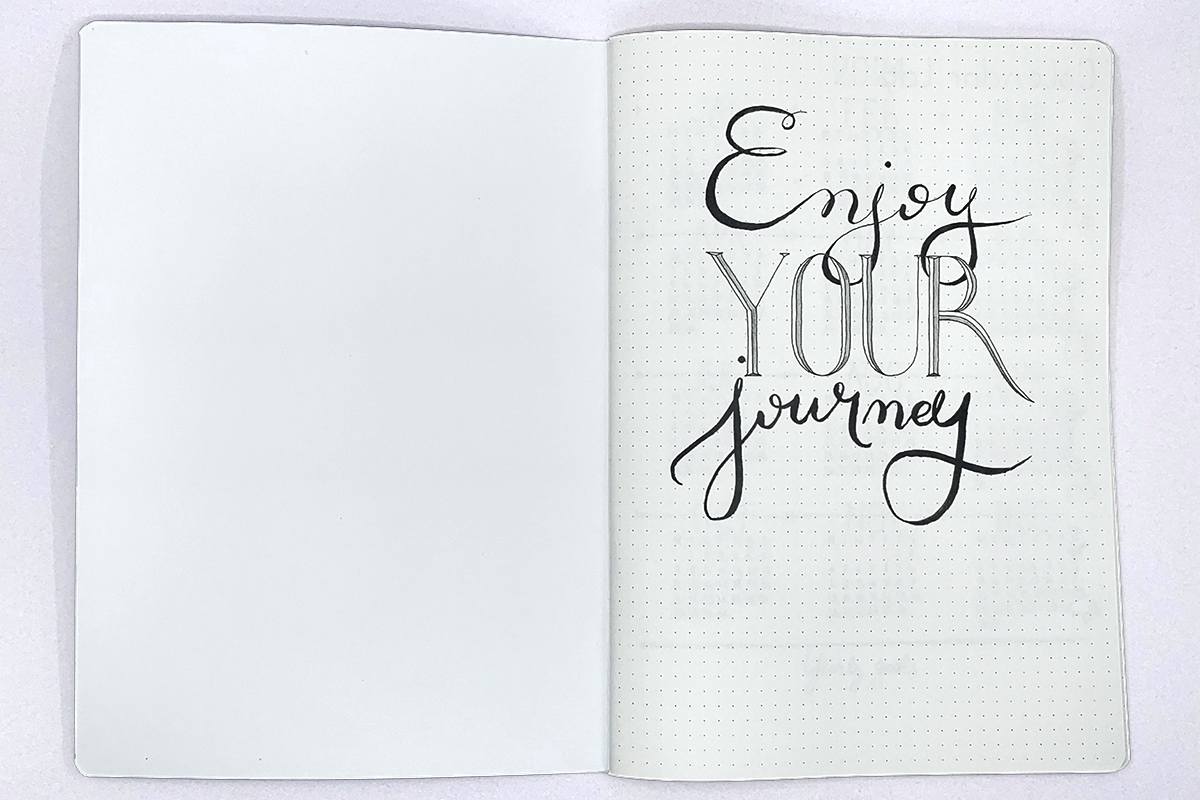 Enjoy
YOUR
journey